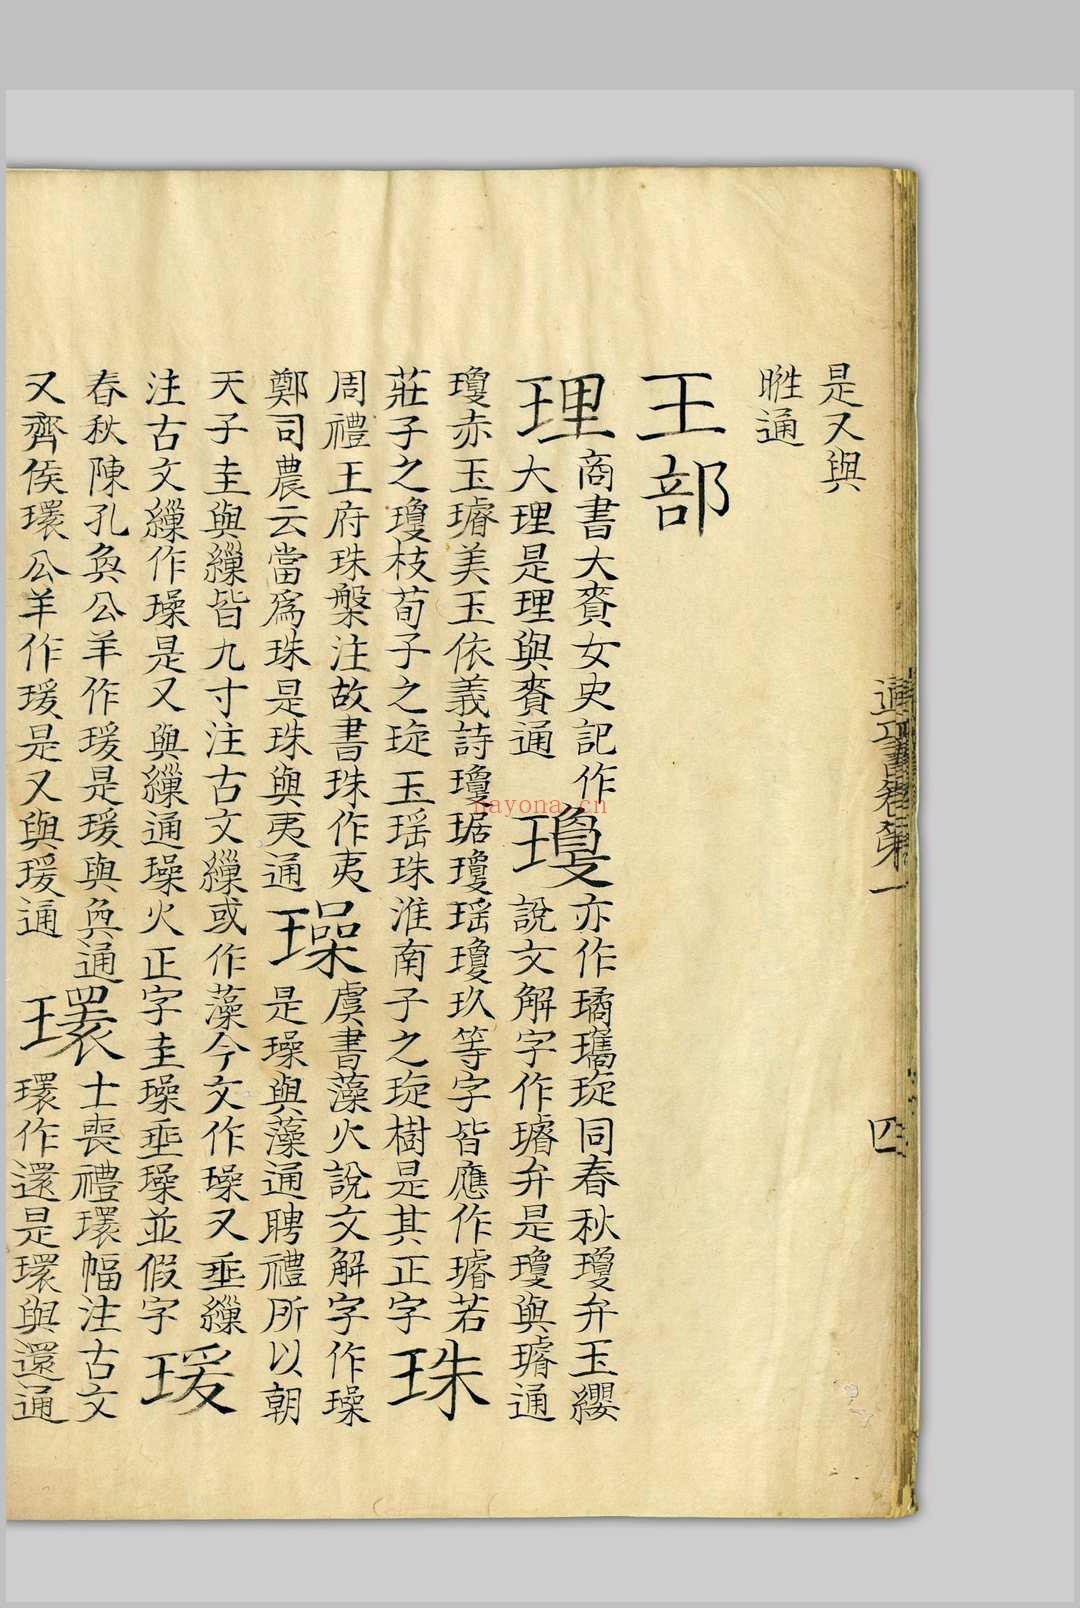 通正書卷第一
四
是又與
通
王部
理
商書大賚女史記作
大理是理與賚通
瓊
亦作璚瓗琁同春秋瓊弁玉纓
說文解字作璿弁是瓊與璿通
瓊赤玉璿美玉依義詩瓊琚瓊瑤瓊玖等字皆應作璿若
莊子之瓊枝荀子之琁玉瑤珠淮南子之琁樹是其正字
珠
周禮王府珠槃注故書珠作夷
鄭司農云當爲珠是珠與夷通
璪
虞書藻火說文解字作璪
是璪與藻通聘禮所以朝
天子圭與繅皆九寸注古文繅或作藻今文作璪又垂繅
注古文繅作璪是又與繅通璪火正字圭璪垂璪並假字
瑗
春秋陳孔奐公羊作瑗是瑗與奐通
又齊侯環公羊作瑗是又與瑗通
環
士喪禮環幅注古文
環作還是環與還通
nayona.cn